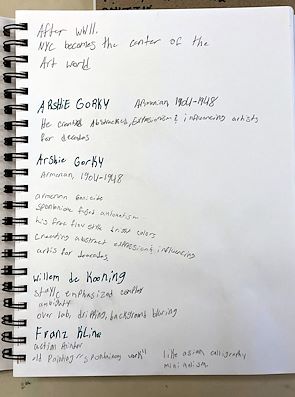 After WWII.
NYC becomes the center of the
Art world
ARSHIE GORKY Armenian, 1904-1948
He created Abstracted, Expressionism & influencing artists
for decades
Arshie GorKY
Armenian, 1904-1948
armenian
automatism
his free flow style bright colors
creating abstract expressionism, influencing
artis for decades
Willem de Kooning
style emphasized conflict
ambiguity
over lab, dripping, background bluring
Franz KLine
action Painter
old Painting "spontaneous work" like asian calligraphy
minimalism